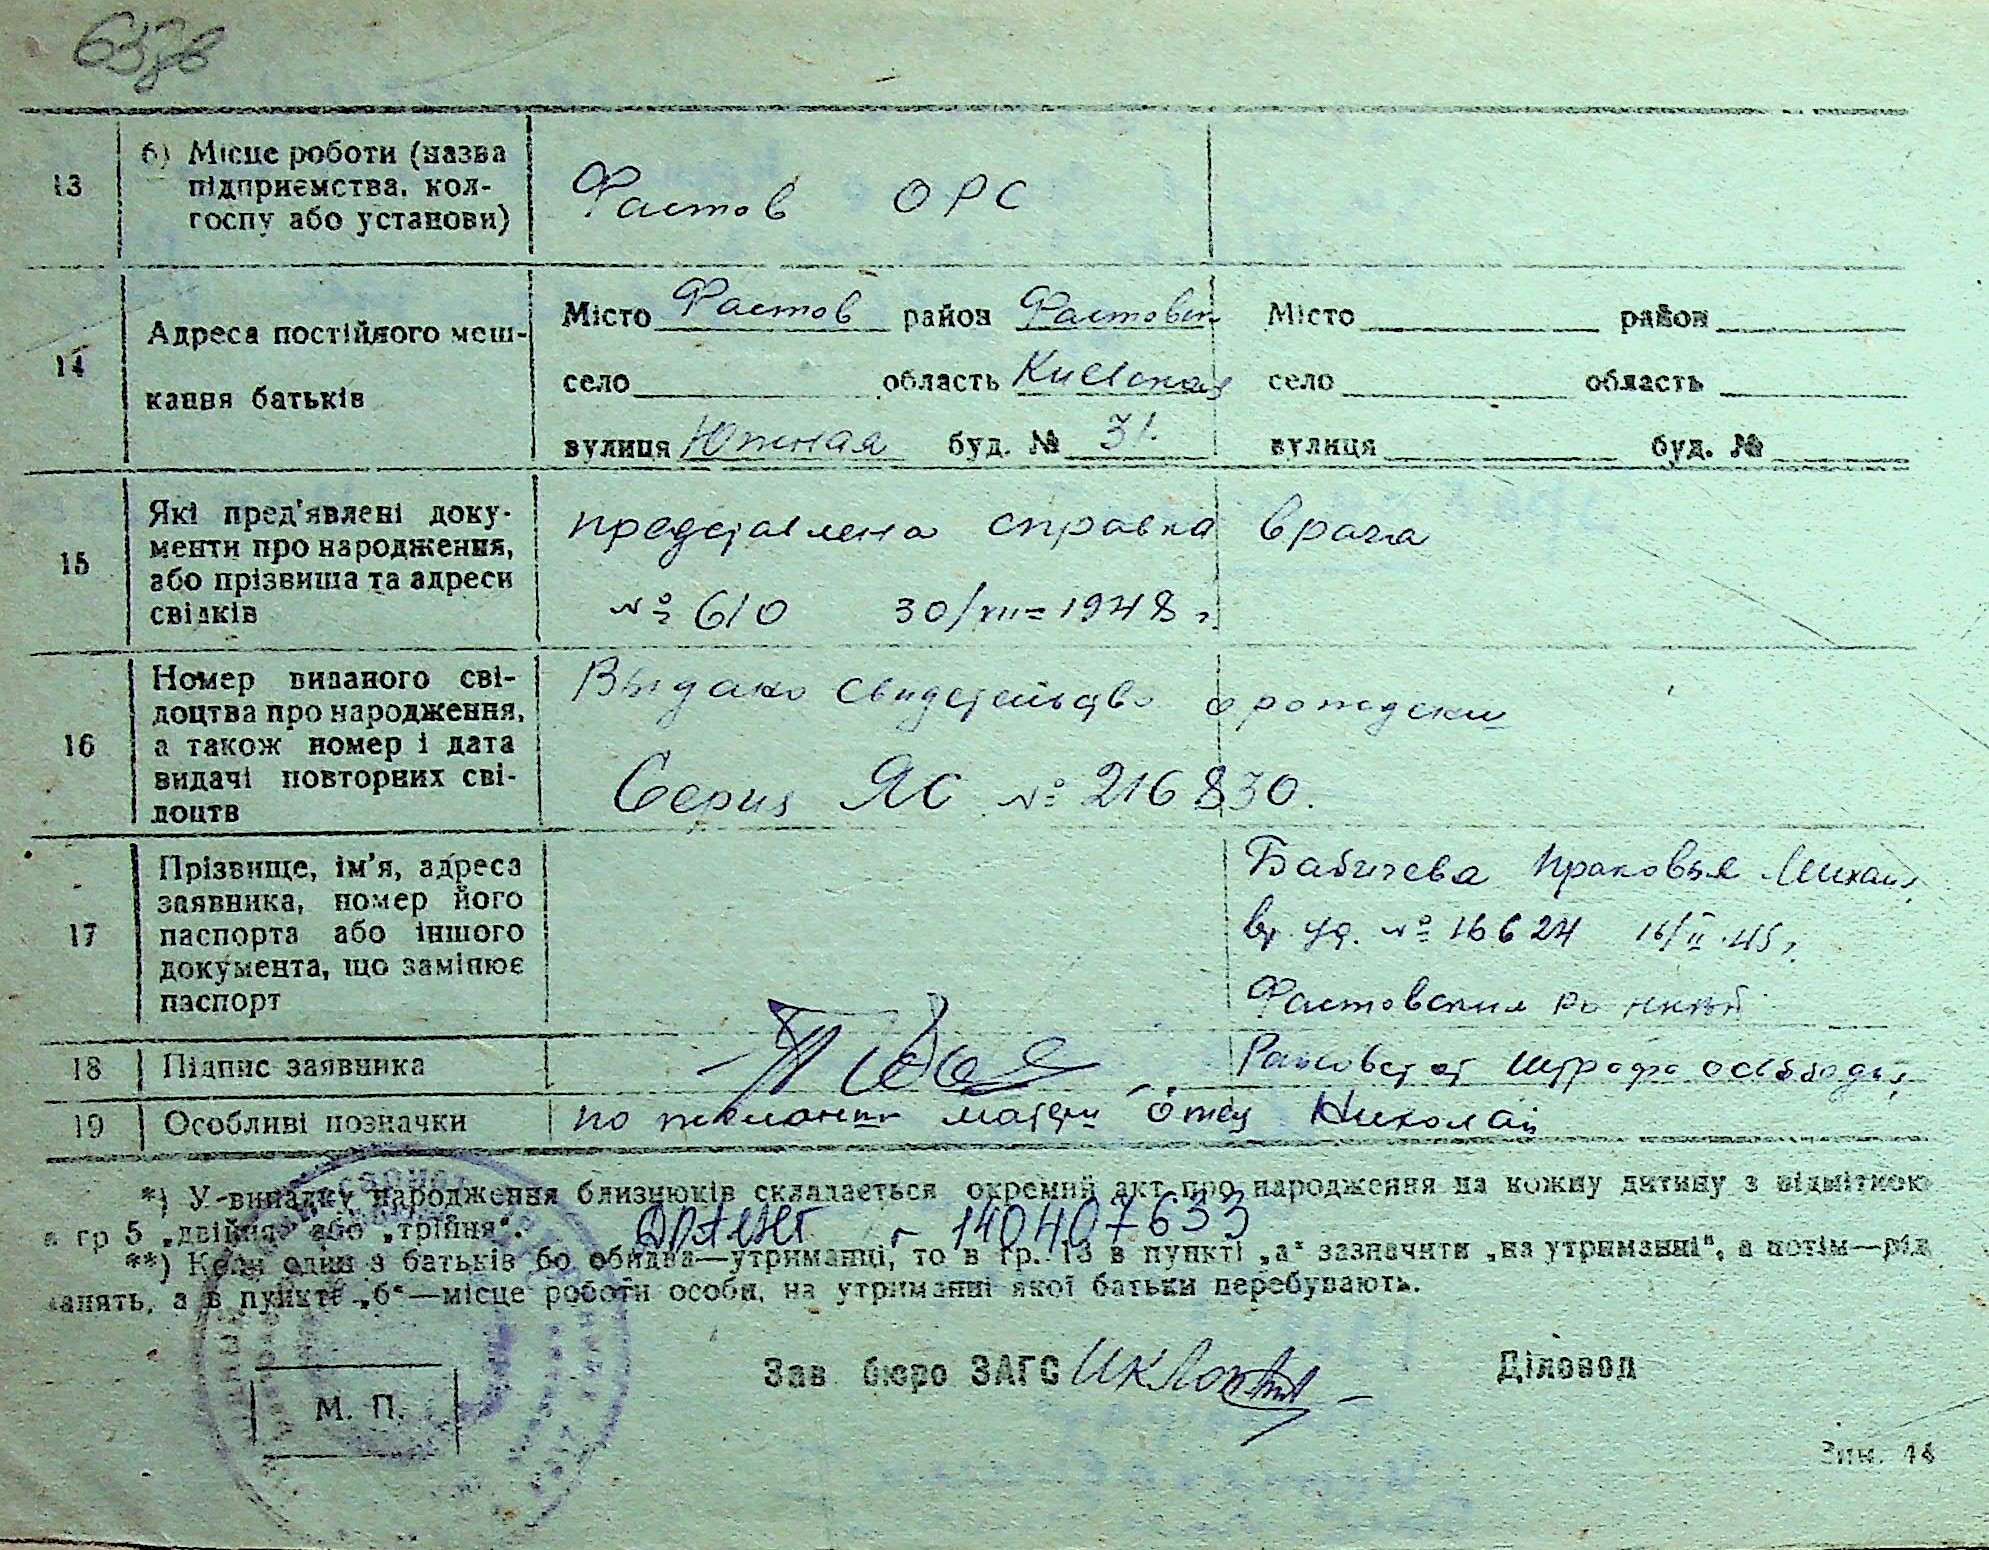 637в
13 б) Місце роботи (назва
підприємства, кол-
госпу або установи)
Фастов ОРС
14 Адреса постійного меш-
кання батьків
Місто Фастов район Фастовск
село область Киевская
вулиця Южная буд. № 31.
Місто район
село область
вулиця буд. №
15 Які пред'явлені доку-
менти про народження,
або прізвища та адреси
свідків
представлена справка врача
№ 610 30/XII-1948 г.
16 Номер виданого сві-
доцтва про народження,
а також номер і дата
видачі повторних сві-
доцтв
Выдано свидетельство о рождении
Серия ЯС № 216830.
17 Прізвище, ім'я, адреса
заявника, номер його
паспорта або іншого
документа, що замінює
паспорт
Бабичева Прасковья Михаил
вр. уд. № 16624 16/II-45 г.
Фастовским РО НКВД
18 Підпис заявника
штрафа освобод
19 Особливі позначки
по желанию матери отец Николай
*) У випадку народження близнюків складається окремий акт про народження на кожну дитину з відміткою
в гр 5 „двійня" або „трійня".
r-140407633
**) Коли один з батьків бо обидва—утриманці, то в гр. 13 в пункті „а" зазначити „на утриманні", а потім—рід
занять, а в пункті „б"—місце роботи особи, на утриманні якої батьки перебувають.
Зав бюро ЗАГС
Діловод
М. П.
Зам. 44